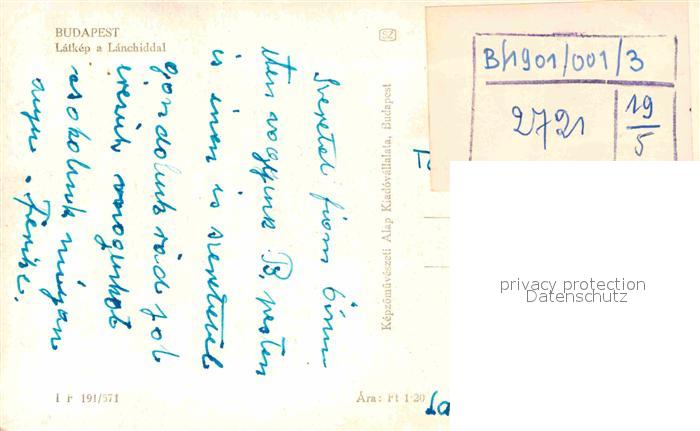 BUDAPEST
Látkép a Lánchiddal
Szeretet fiom
itten vagyunk B, pesten
is innen is szeretetel
gondolunk rád jol
érezük magunkat
csokolunk
anyu. Ferike.
Képzőművészeti Alap Kiadóvállalata, Budapest
191/571
Ára: Ft 1·20
BH901/001/3
2721
19
5
privacy protection
Datenschutz